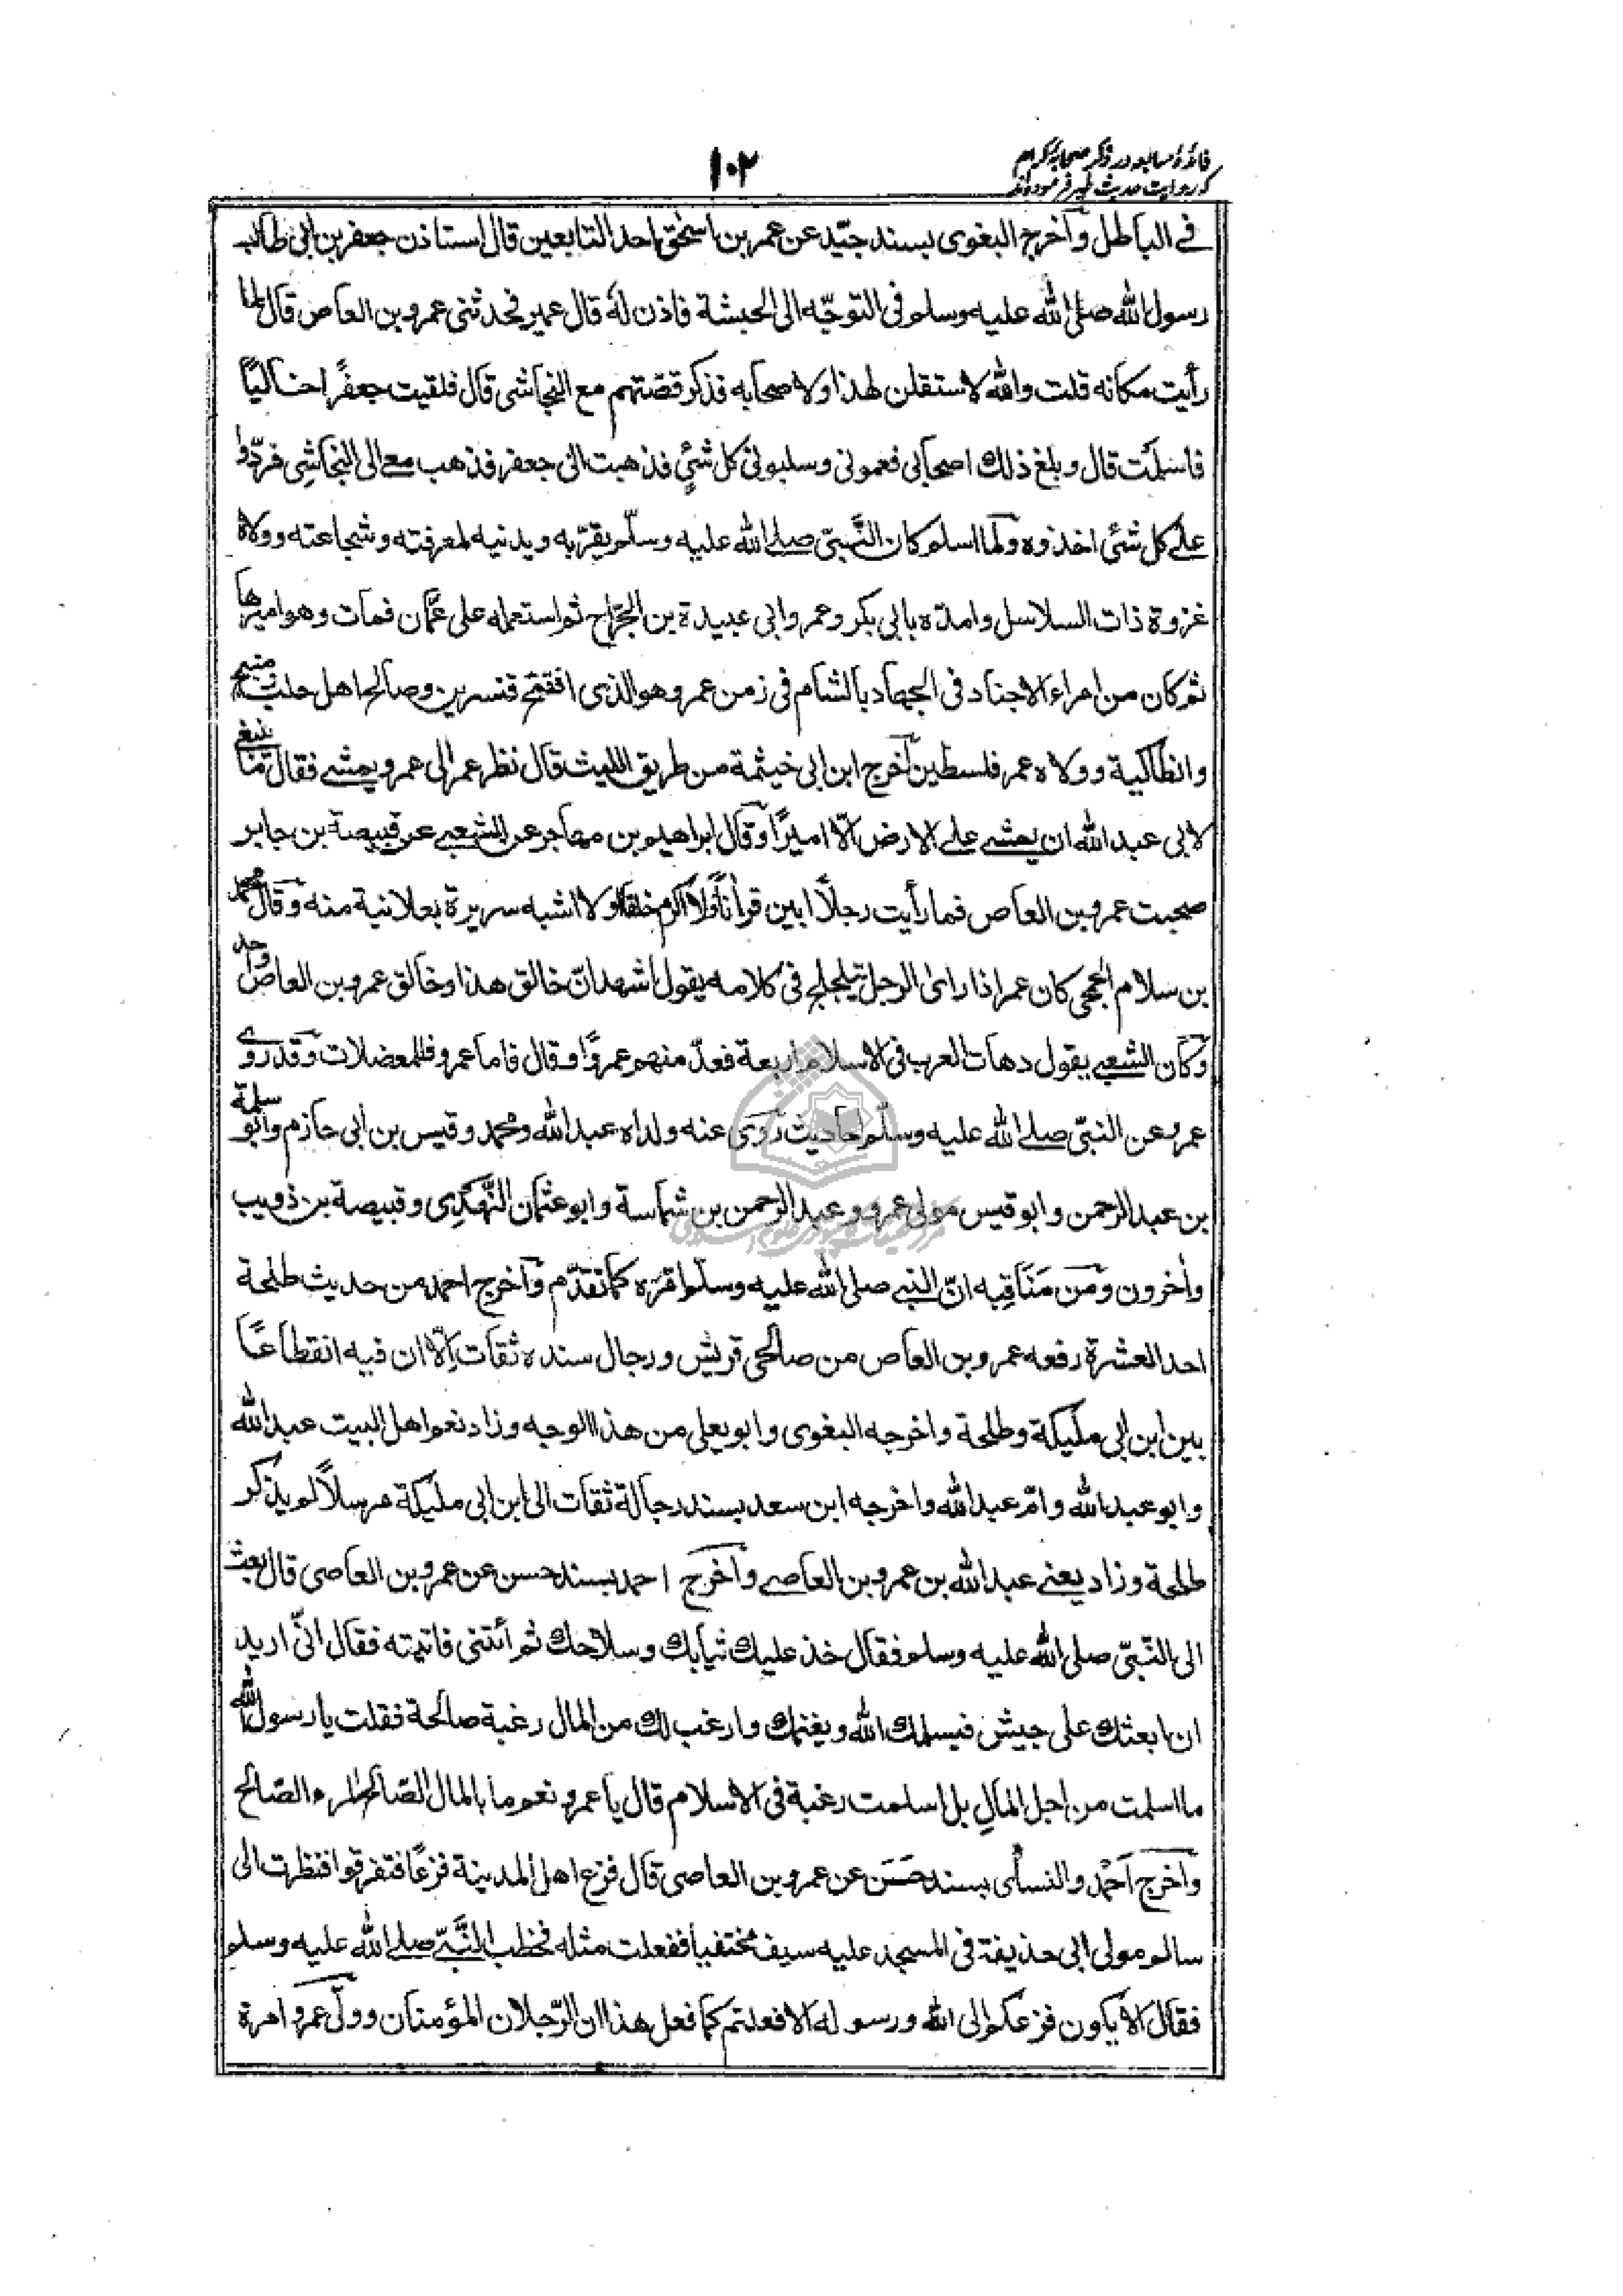 ١٠٢
فائدهٔ سابعه در ذكر صحابهٔ كرام
كه روايت حديث غدير فرموده‌اند
في الباطل وآخرج البغوى بسند جيّد عن عمر بن اسحٰق احد التابعين قال استاذن جعفر بن ابى طالب
رسول الله صلى الله عليه وسلم فى التوجّه الى الحبشة فاذن لهٗ قال عمير فحدثنى عمرو بن العاص قال لما
رأيت مكانه قلت والله لاستقلن لهذا ولاصحابه فذكر قصّتهم مع النجاشى قال فلقيت جعفرًا خاليًا
فاسلمت قال وبلغ ذلك اصحابى فعمونى وسلبونى كل شئٍ فذهبت الى جعفر فذهب معے الى النجاشِى فردّوا
علے كل شئى اخذوه ولما اسلم كان النَّبىّ صلے الله عليه وسلّم يقرّبه ويدنيه لمعرفته وشجاعته وولاه
غزوة ذات السلاسل وامدّه بابى بكر وعمر وابى عبيدة بن الجرّاح ثم استعمله على عمّان فمات وهو اميرها
ثم كان من امراء الاجناد فى الجهاد بالشام فى زمن عمر وهو الذى افتتح قنسرين وصالح اهل حلب ومنبج
وانطاكية وولاه عمر فلسطين آخرج ابن ابى خيثمة من طريق الليث قال نظر عمر الى عمرو يمشے فقال ما ينبغے
لابى عبد الله ان يمشے علے الارض الّا اميرًا وقال ابراهيم بن مهاجر عن الشعبے عن قبيصة بن جابر
صحبت عمرو بن العاص فما رأيت رجلًا ابين قرأنًا ولا اكرم خلقا ولا اشبه سريرة بعلانية منه وقال محمد
بن سلام الجمحى كان عمر اذا راى الرجل يتلجلج فى كلامه يقول اشهد انّ خالق هذا وخالق عمرو بن العاص واحد
وكان الشعبے يقول دهات العرب فى الاسلام اربعة فعدّ منهم عمروًا وقال فاما عمرو فللمعضلات وقد روى
عمرو عن النبىّ صلے الله عليه وسلّم احاديث روى عنه ولداه عبد الله ومحمد وقيس بن ابى حازم وابو سلمة
بن عبد الرحمن وابو قيس مولى عمرو وعبد الرحمن بن شماسة وابو عثمان النَّهدِى وقبيصة بن ذويب
وأخرون ومن مَنَاقِبه انّ النبے صلى الله عليه وسلّم امّره كما تقدّم وآخرج احمد من حديث طلحة
احد العشرة رفعه عمرو بن العاص من صالحى قريش ورجال سنده ثقات اِلّا ان فيه انقطاعًا
بين ابن ابى مليكة وطلحة واخرجه البغوى وابو يعلى من هذا الوجه وزاد نعم اهل البيت عبد الله
وابو عبد الله وامّ عبد الله واخرجه ابن سعد بسند رجالة ثقات الى ابن ابى مليكة مرسلًا لم يذكر
طلحة وزاد يعنے عبد الله بن عمرو بن العاصے وآخرج احمد بسند حسن عن عمرو بن العاصى قال بعث
الى النّبىّ صلى الله عليه وسلم فقال خذ عليك ثيابك وسلاحك ثم ائتنى فاتيته فقال انّى اريد
ان ابعثك على جيش فيسلمك الله ويغنمك وارغب لك من المال رغبة صالحة فقلت يا رسول الله
ما اسلمت من اجل المالِ بل اسلمت رغبة فى الاسلام قال يا عمرو نعم ما بالمال الصّالح المرء الصّالح
وآخرج آحمد والنسأى بسند حَسَن عن عمرو بن العاصى قال فزع اهل المدينة فزعًا فتفرقوا فنظرت الى
سالم مولى ابى حذيفة فى المسجد عليه سيف مختفيا ففعلت مثله فخطب النَّبىّ صلے الله عليه وسلم
فقال الا يكون فزعكم الى الله ورسوله الا فعلتم كما فعل هذا ان الرّجلان المؤمنان وولّى عمرو امرة